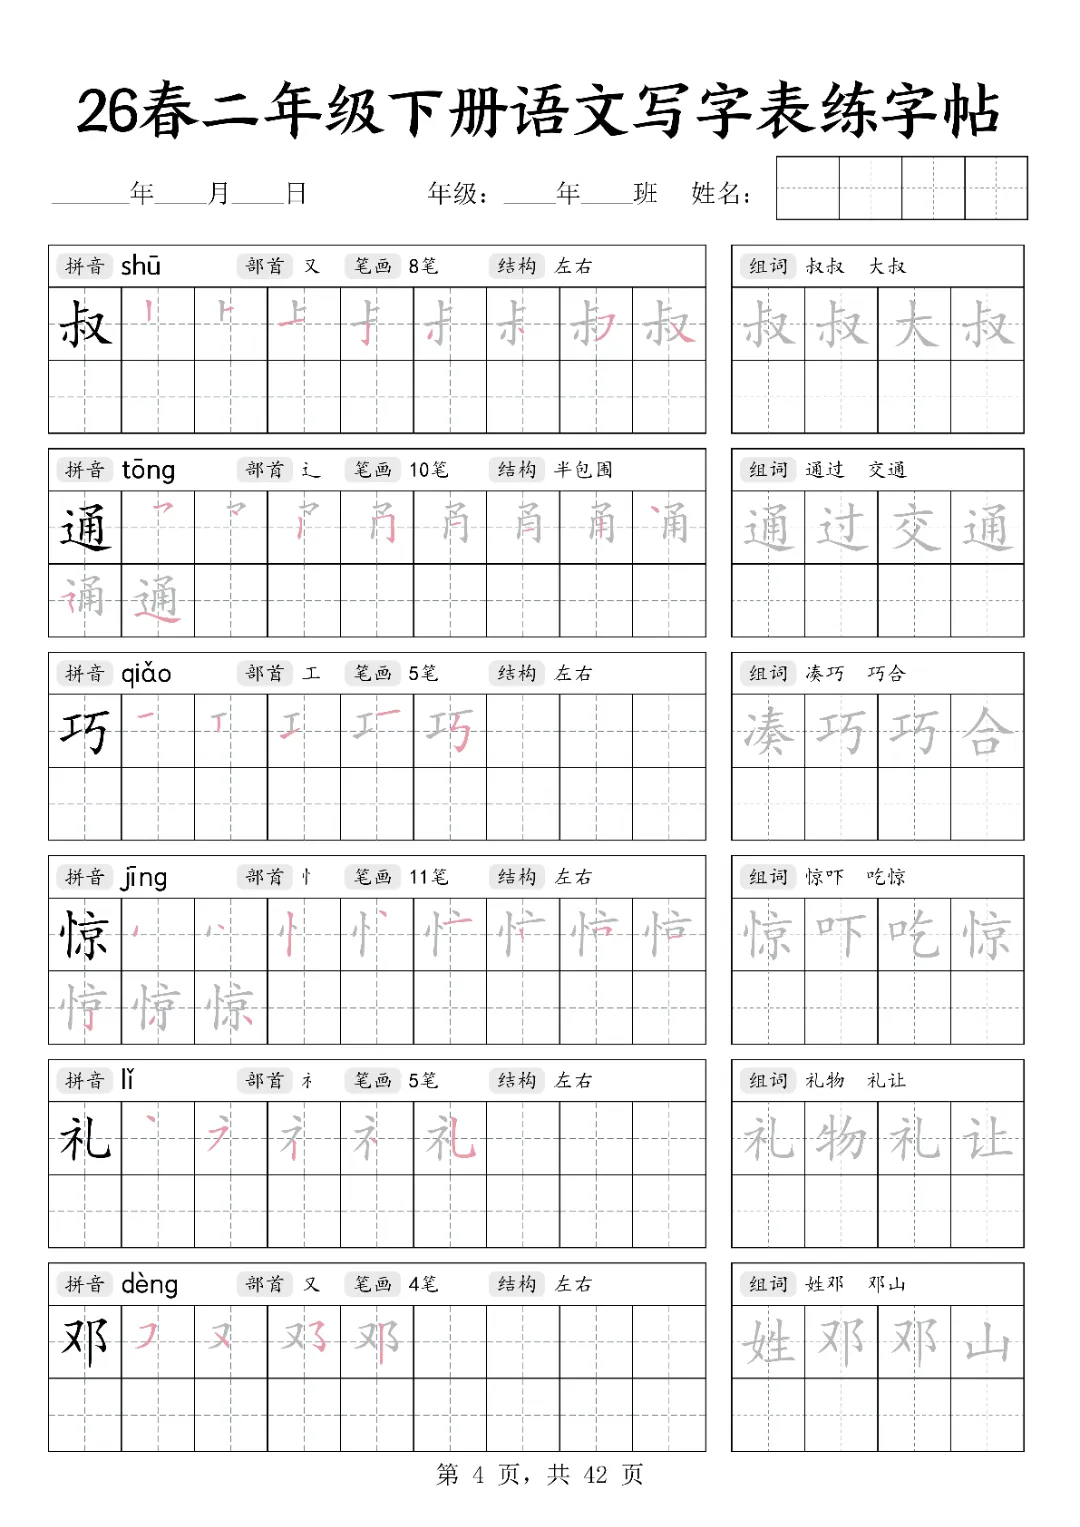 26春二年级下册语文写字表练字帖
______年____月____日 年级：____年____班 姓名：
拼音 shū 部首 又 笔画 8笔 结构 左右 组词 叔叔 大叔
叔 叔 叔 大 叔
拼音 tōng 部首 辶 笔画 10笔 结构 半包围 组词 通过 交通
通 通 过 交 通
通
拼音 qiǎo 部首 工 笔画 5笔 结构 左右 组词 凑巧 巧合
巧 巧 凑 巧 巧 合
拼音 jīng 部首 忄 笔画 11笔 结构 左右 组词 惊吓 吃惊
惊 惊 吓 吃 惊
惊
拼音 lǐ 部首 礻 笔画 5笔 结构 左右 组词 礼物 礼让
礼 礼 礼 物 礼 让
拼音 dèng 部首 又 笔画 4笔 结构 左右 组词 姓邓 邓山
邓 邓 姓 邓 邓 山
第 4 页，共 42 页